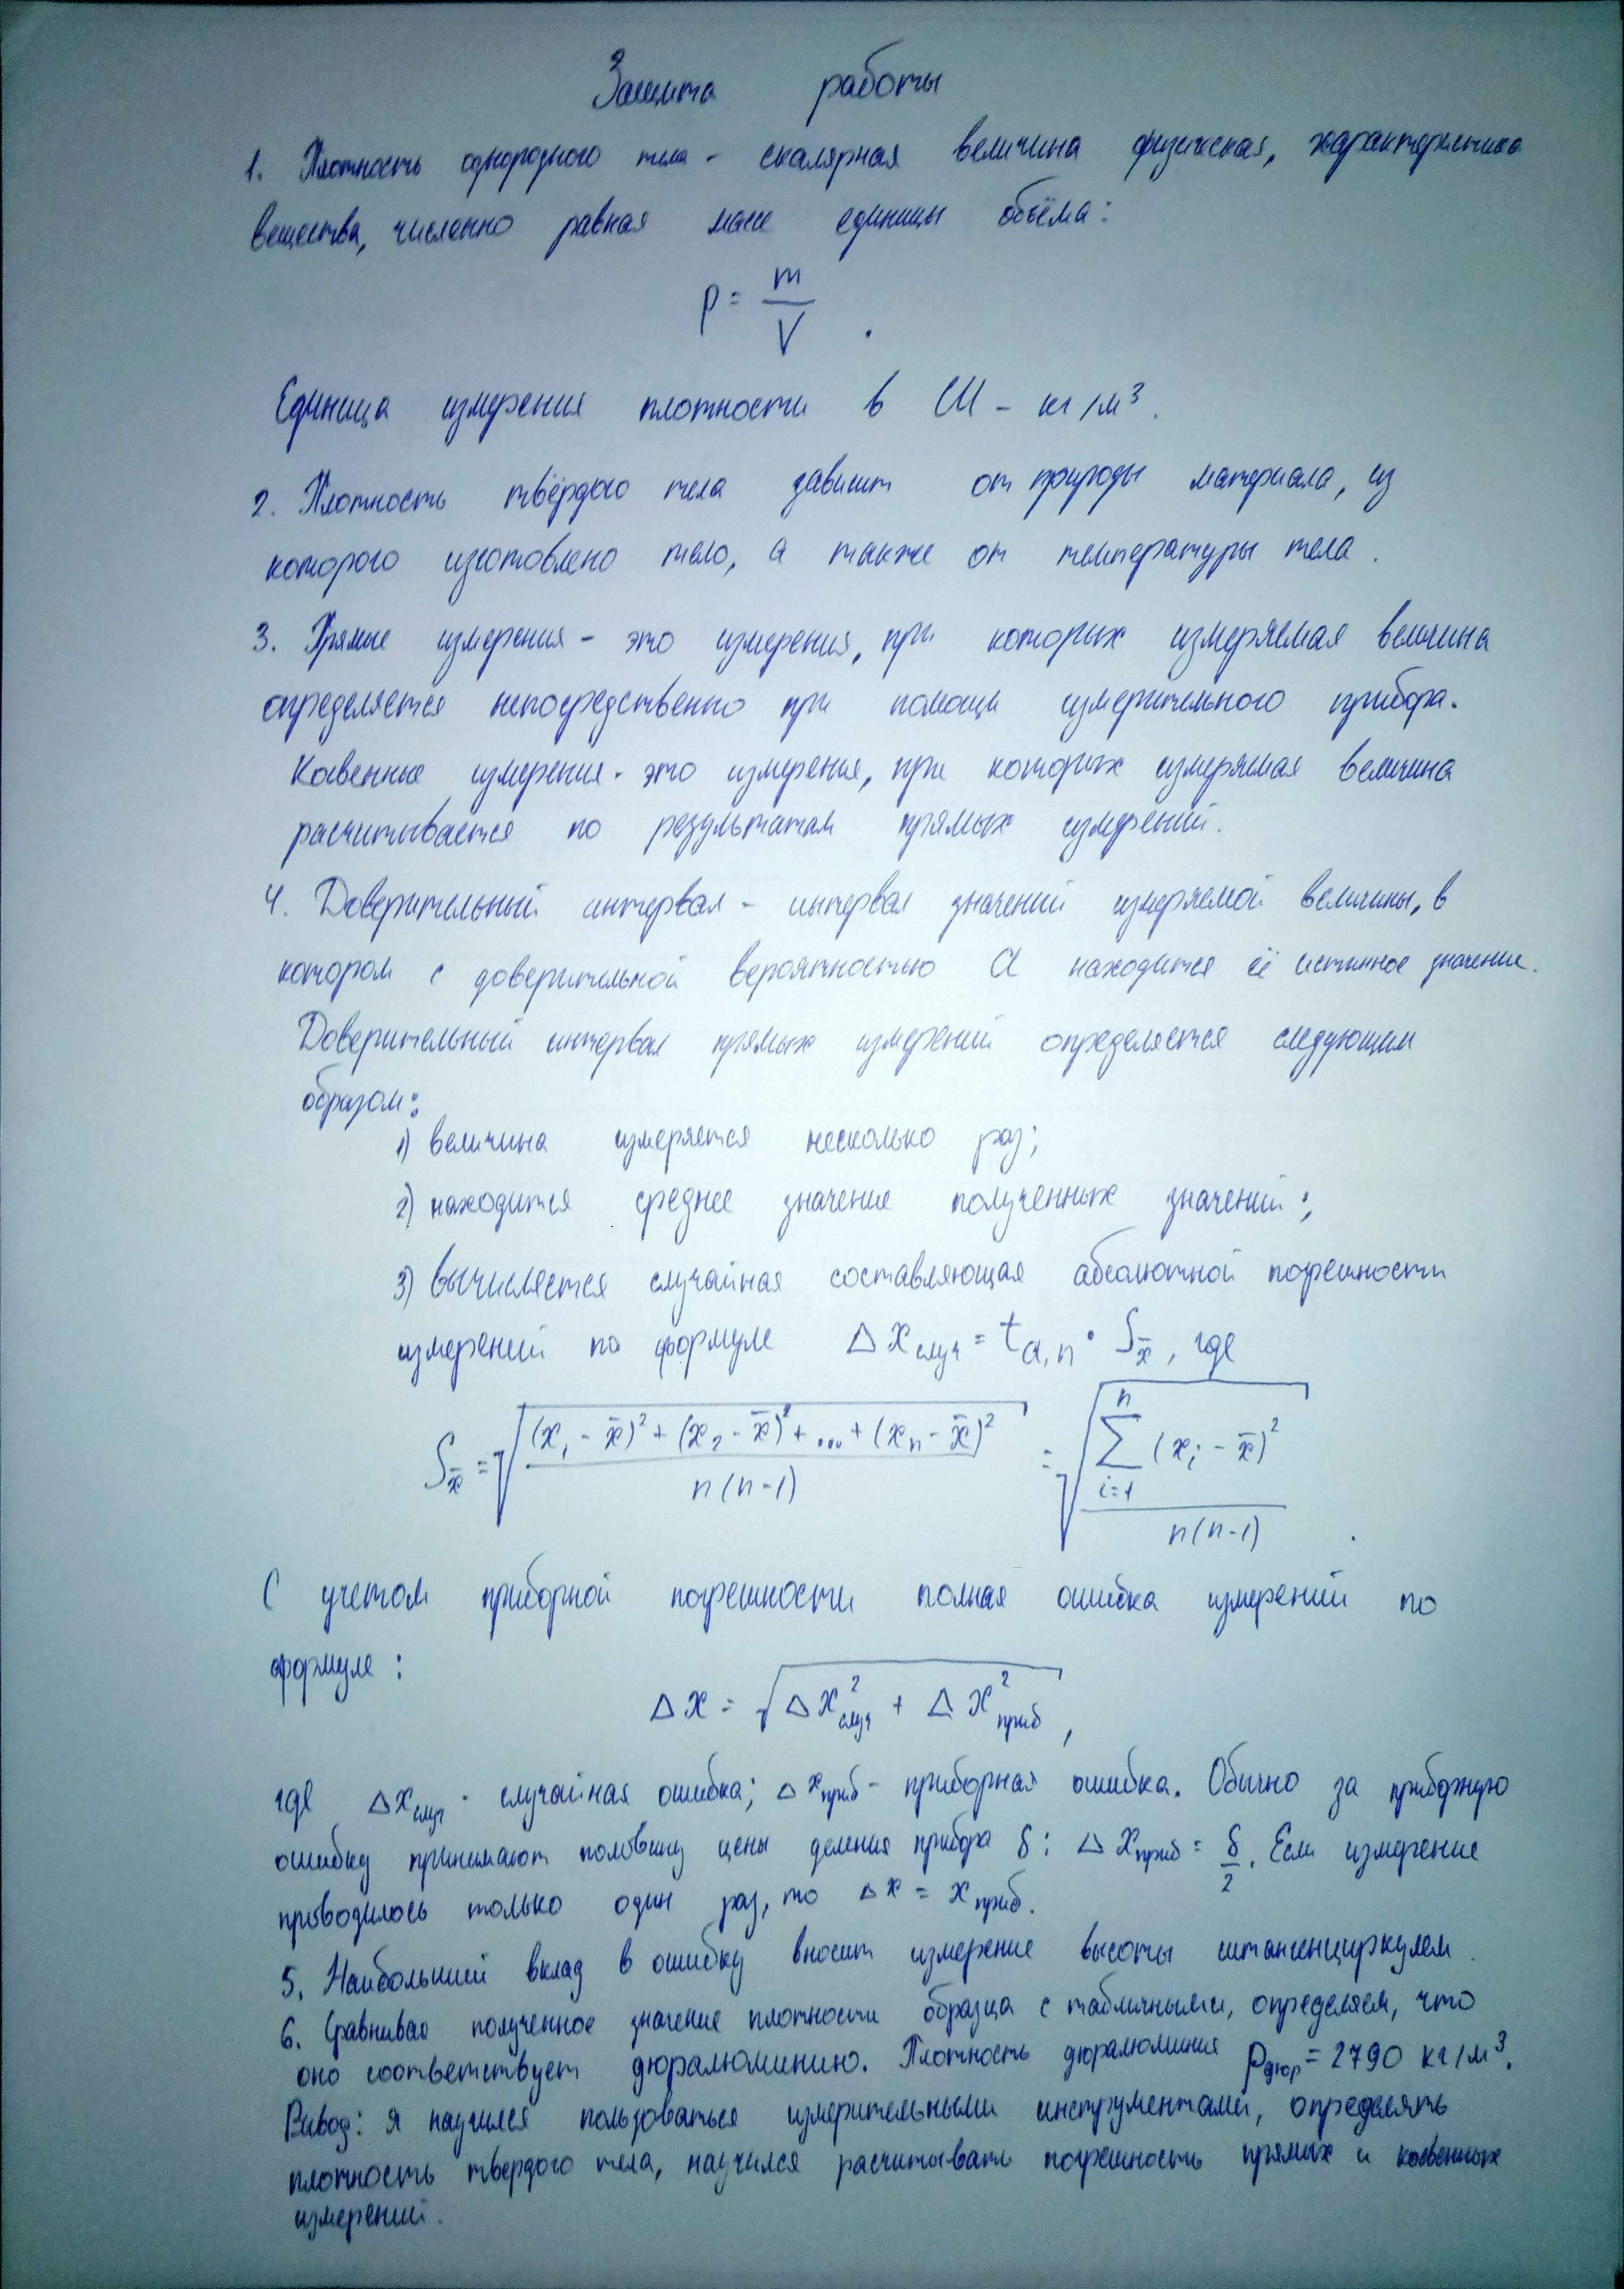 Защита работы
1. Плотность однородного тела - скалярная величина физическая, характеристика
вещества, численно равная массе единицы объёма:
ρ = m/V .
Единица измерения плотности в СИ - кг/м³.
2. Плотность твёрдого тела зависит от природы материала, из
которого изготовлено тело, а также от температуры тела.
3. Прямые измерения - это измерения, при которых измеряемая величина
определяется непосредственно при помощи измерительного прибора.
Косвенные измерения - это измерения, при которых измеряемая величина
расчитывается по результатам прямых измерений.
4. Доверительный интервал - интервал значений измеряемой величины, в
котором с доверительной вероятностью α находится её истинное значение.
Доверительный интервал прямых измерений определяется следующим
образом:
1) величина измеряется несколько раз;
2) находится среднее значение полученных значений;
3) вычисляется случайная составляющая абсолютной погрешности
измерений по формуле Δx случ = t α,n · S x̄ , где
S x̄ = √((x₁ - x̄)² + (x₂ - x̄)² + ... + (xn - x̄)² / n(n-1)) = √(∑ i=1 n (xi - x̄)² / n(n-1)) .
С учетом приборной погрешности полная ошибка измерений по
формуле:
Δx = √(Δx² случ + Δx² приб) ,
где Δx случ - случайная ошибка; Δx приб - приборная ошибка. Обычно за приборную
ошибку принимают половину цены деления прибора δ: Δx приб = δ/2. Если измерение
проводилось только один раз, то Δx = x приб.
5. Наибольший вклад в ошибку вносит измерение высоты штангенциркулем.
6. Сравнивая полученное значение плотности образца с табличными, определяем, что
оно соответствует дюралюминию. Плотность дюралюминия ρ дюр = 2790 кг/м³.
Вывод: я научился пользоваться измерительными инструментами, определять
плотность твердого тела, научился расчитывать погрешность прямых и косвенных
измерений.